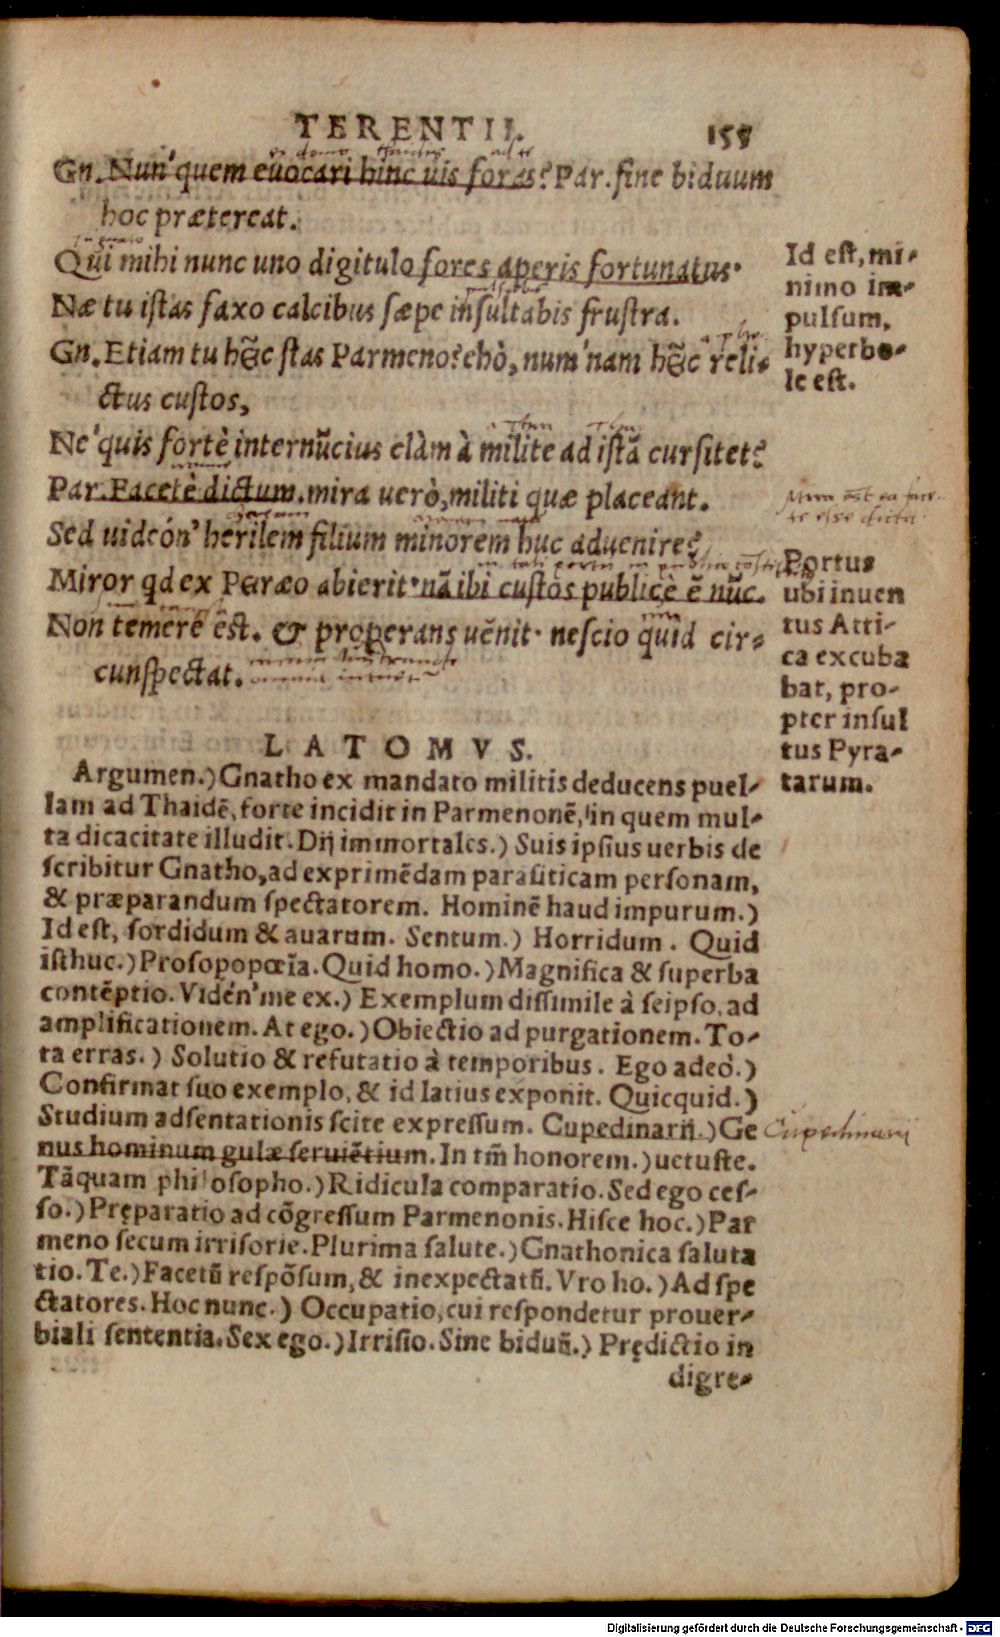 TERENTII. 155
Gn. Nun' quem euocari hinc uis foras? Par. sine biduum
hoc prætereat.
Qui mihi nunc uno digitulo fores aperis fortunatus·
Næ tu istas faxo calcibus sæpe insultabis frustra.
Gn. Etiam tu hîc stas Parmeno? ehò, num'nam hîc reli-
ctus custos,
Ne'quis fortè internũcius clàm à milite ad istã cursitet?
Par. Facetè dictum. mira uerò, militi quæ placeant.
Sed uideón' herilem filium minorem huc aduenire?
Miror qd ex Paræo abierit· nã ibi custos publicè ẽ nũc.
Non temerè est. & properans uẽnit· nescio quid cir-
cunspectat.
Id est, mi-
nimo im-
pulsum,
hyperbo-
le est.
Mira est ea face-
te esse dicta
Portus
ubi inuen
tus Atti-
ca excuba
bat, pro-
pter insul
tus Pyra-
tarum.
LATOMVS.
Argumen.) Gnatho ex mandato militis deducens puel-
lam ad Thaidẽ, forte incidit in Parmenonẽ, in quem mul-
ta dicacitate illudit. Dij immortales.) Suis ipsius uerbis de
scribitur Gnatho, ad exprimẽdam parasiticam personam,
& præparandum spectatorem. Hominẽ haud impurum.)
Id est, sordidum & auarum. Sentum.) Horridum. Quid
isthuc.) Prosopopœĩa. Quid homo.) Magnifica & superba
contẽptio. Vidén'me ex.) Exemplum dissimile à seipso, ad
amplificationem. At ego.) Obiectio ad purgationem. To-
ta erras.) Solutio & refutatio à temporibus. Ego adeò.)
Confirmat suo exemplo, & id latius exponit. Quicquid.)
Studium adsentationis scite expressum. Cupedinarij.) Ge
nus hominum gulæ seruiẽtium. In tm̃ honorem.) uetuste.
Tãquam philosopho.) Ridicula comparatio. Sed ego ces-
so.) Pręparatio ad cõgressum Parmenonis. Hisce hoc.) Par
meno secum irrisorie. Plurima salute.) Gnathonica saluta
tio. Te.) Facetũ respõsum, & inexpectatũ. Vro ho.) Ad spe
ctatores. Hoc nunc.) Occupatio, cui respondetur prouer-
biali sententia. Sex ego.) Irrisio. Sine biduũ.) Prędictio in
digre-
Cupedinarij